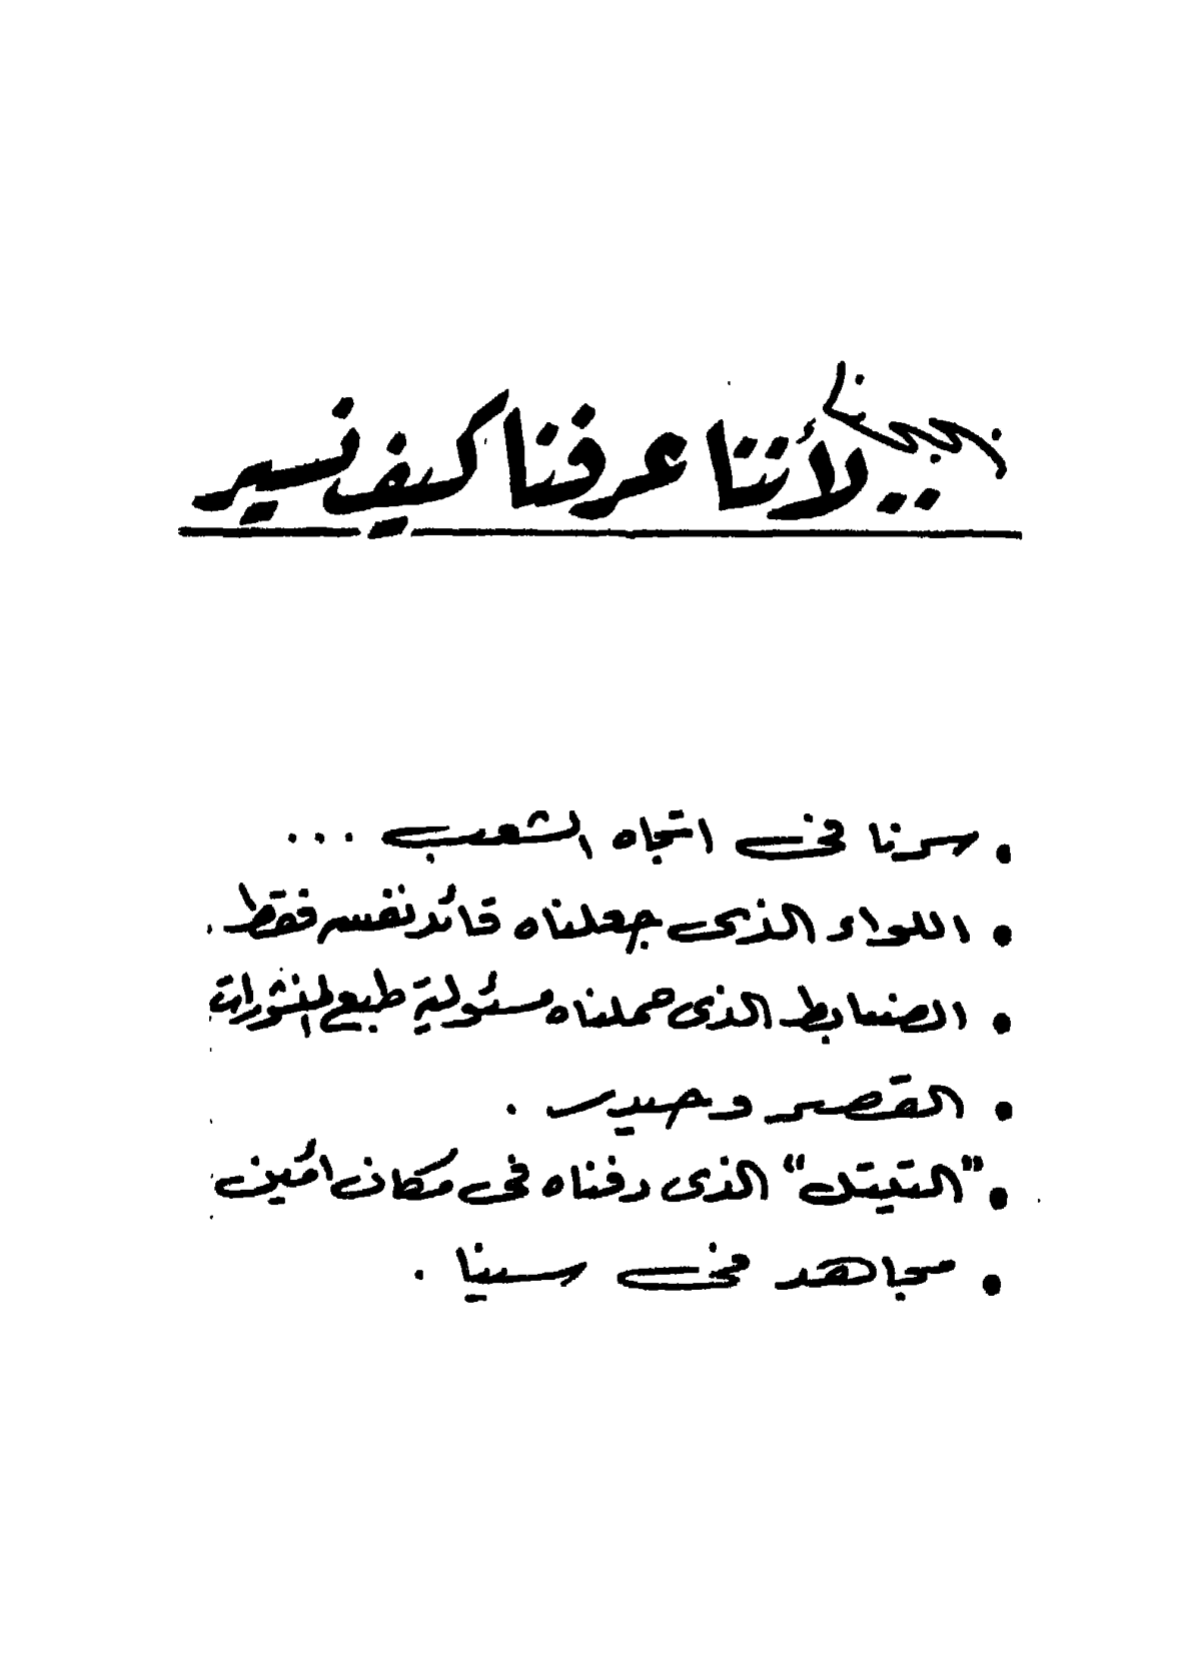 نجحنا
.. لأننا عرفنا كيف نسير
• سرنا فى اتجاه الشعب ...
• اللواء الذى جعلناه قائد نفسه فقط .
• الضابط الذى حملناه مسئولية طبع المنشورات
• القصر وحيدر .
• "التيتل" الذى دفناه فى مكان أمين
• مجاهد فى سينا .